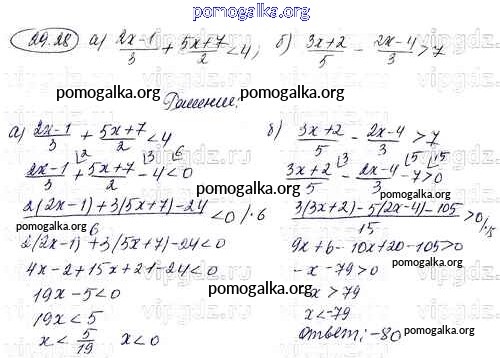 pomogalka.org
29.28 а) (2x-1)/3 + (5x+7)/2 < 4; б) (3x+2)/5 - (2x-4)/3 > 7
pomogalka.org Решение: pomogalka.org
а) (2x-1)/3 + (5x+7)/2 < 4
(2x-1)/3 + (5x+7)/2 - 4 < 0
(2(2x-1)+3(5x+7)-24)/6 < 0 /·6
2(2x-1)+3(5x+7)-24<0
4x-2+15x+21-24<0
19x-5<0
19x<5
x < 5/19 x<0
б) (3x+2)/5 - (2x-4)/3 > 7
(3x+2)/5 - (2x-4)/3 - 7 > 0
(3(3x+2)-5(2x-4)-105)/15 > 0 /·15
9x+6-10x+20-105>0
-x-79>0
-x>79
x<-79
Ответ: -80
pomogalka.org pomogalka.org
pomogalka.org pomogalka.org
pomogalka.org pomogalka.org
pomogalka.org pomogalka.org